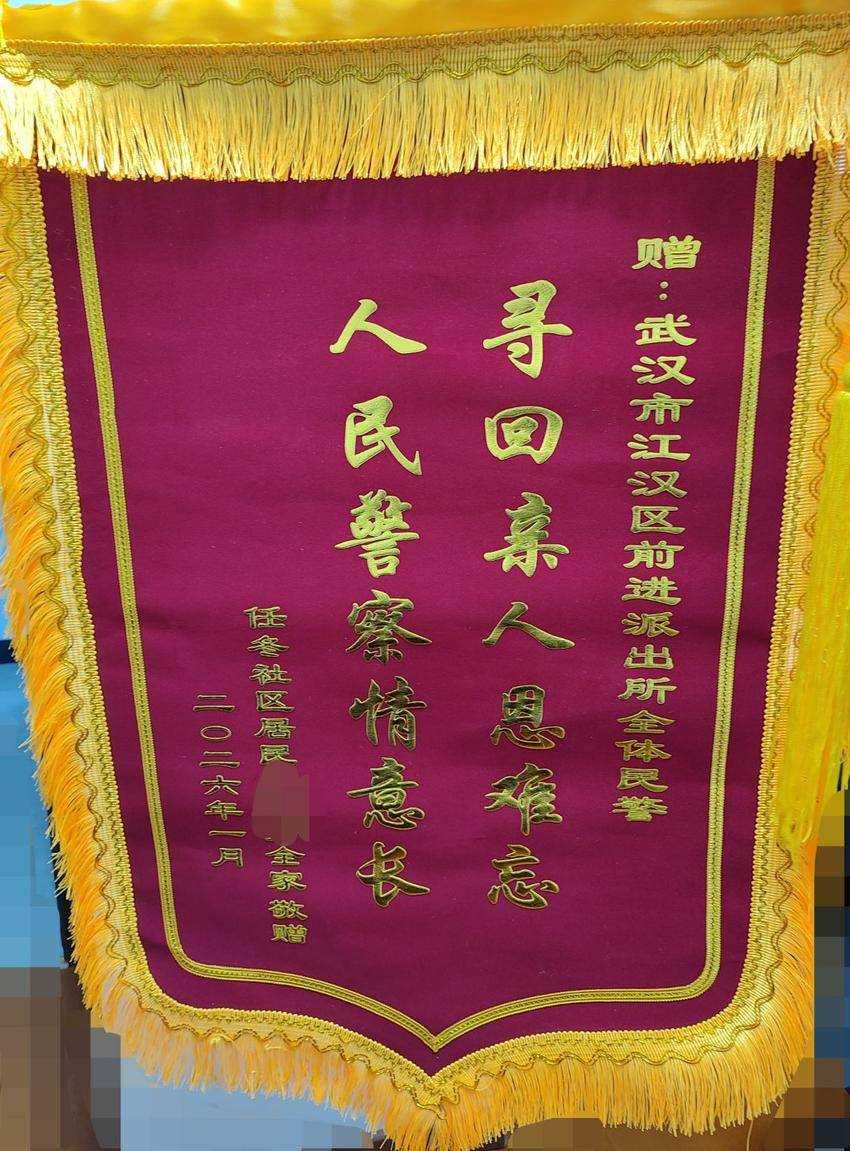 赠：武汉市江汉区前进派出所全体民警
寻回亲人恩难忘
人民警察情意长
任冬社区居民 全家敬赠
二〇二六年一月